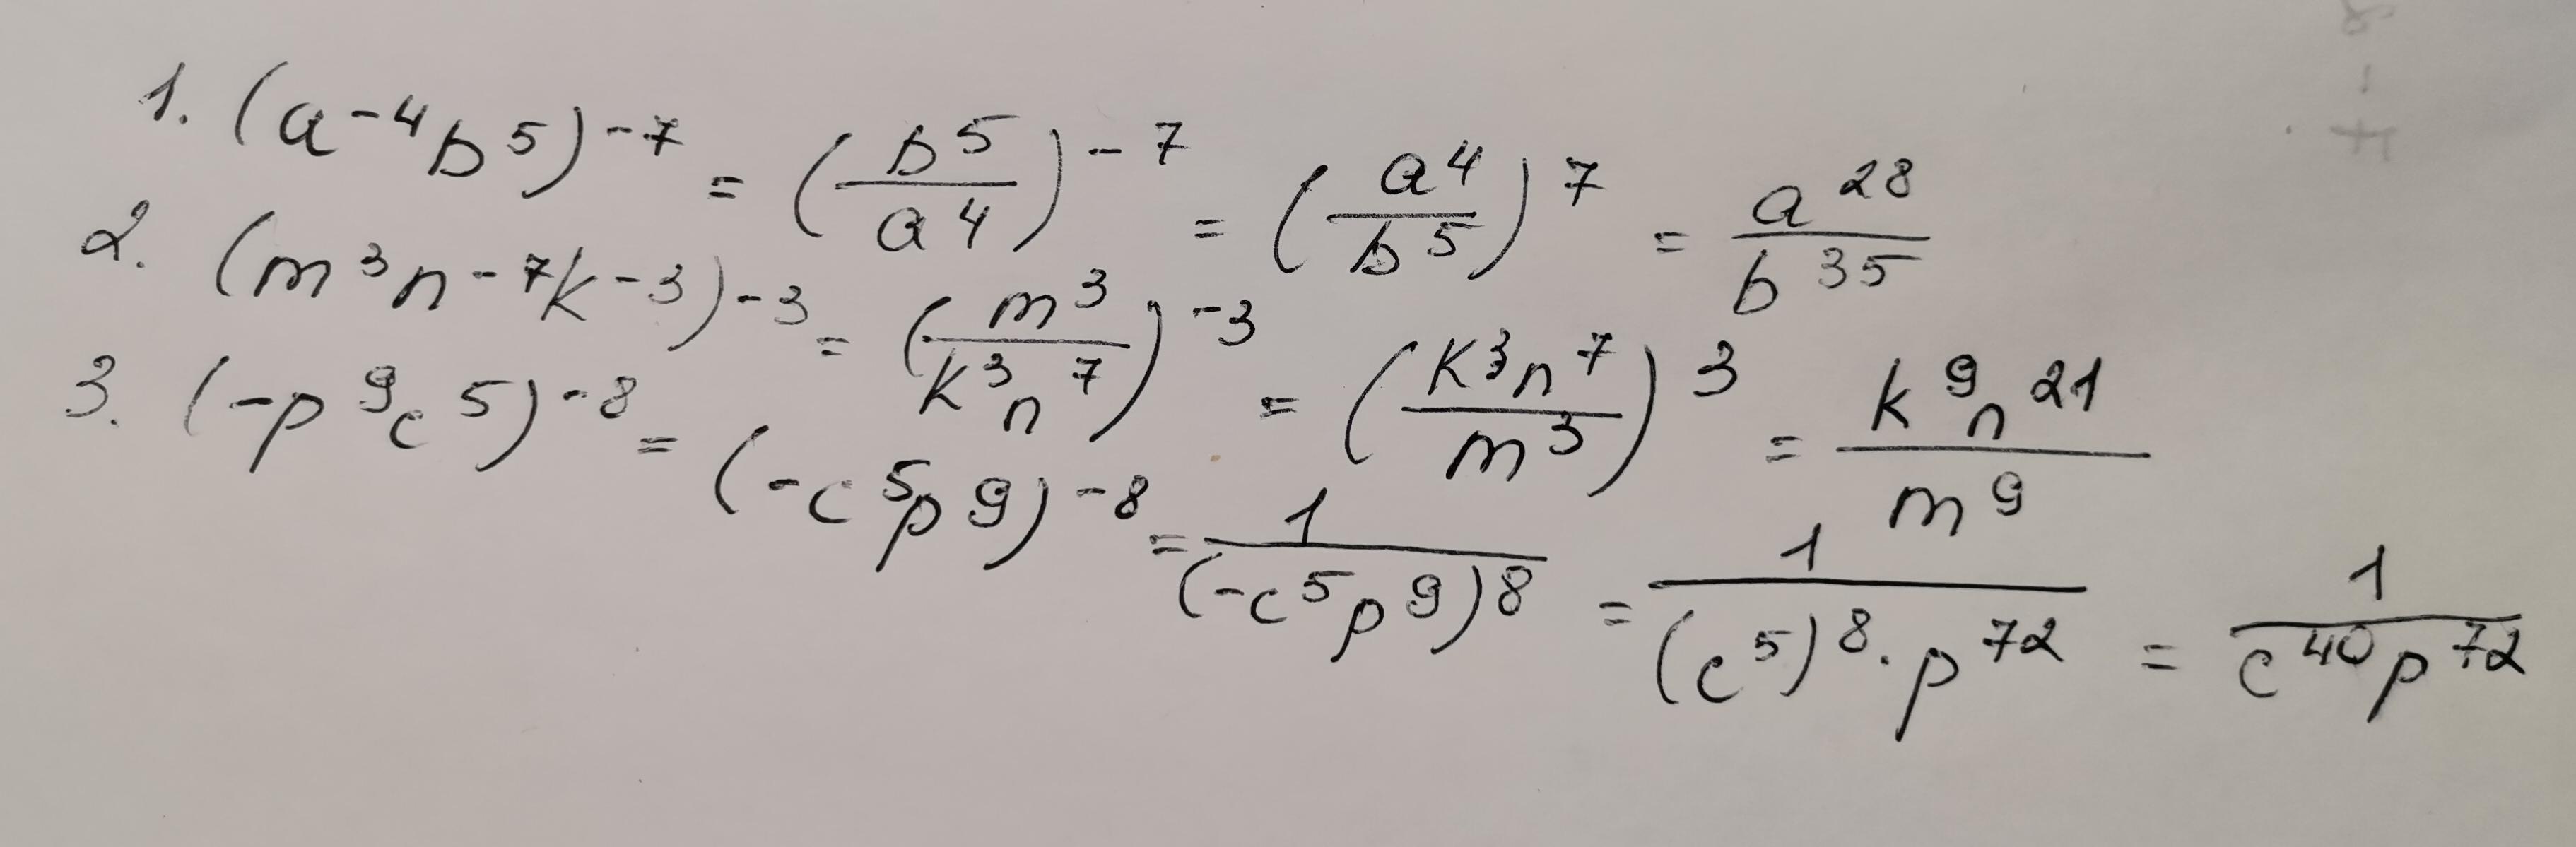 1. (a⁻⁴b⁵)⁻⁷ = (b⁵/a⁴)⁻⁷ = (a⁴/b⁵)⁷ = a²⁸/b³⁵
2. (m³n⁻⁷k⁻³)⁻³ = (m³/k³n⁷)⁻³ = (k³n⁷/m³)³ = k⁹n²¹/m⁹
3. (-p⁹c⁵)⁻⁸ = (-c⁵p⁹)⁻⁸ = 1/(-c⁵p⁹)⁸ = 1/(c⁵)⁸·p⁷² = 1/c⁴⁰p⁷²